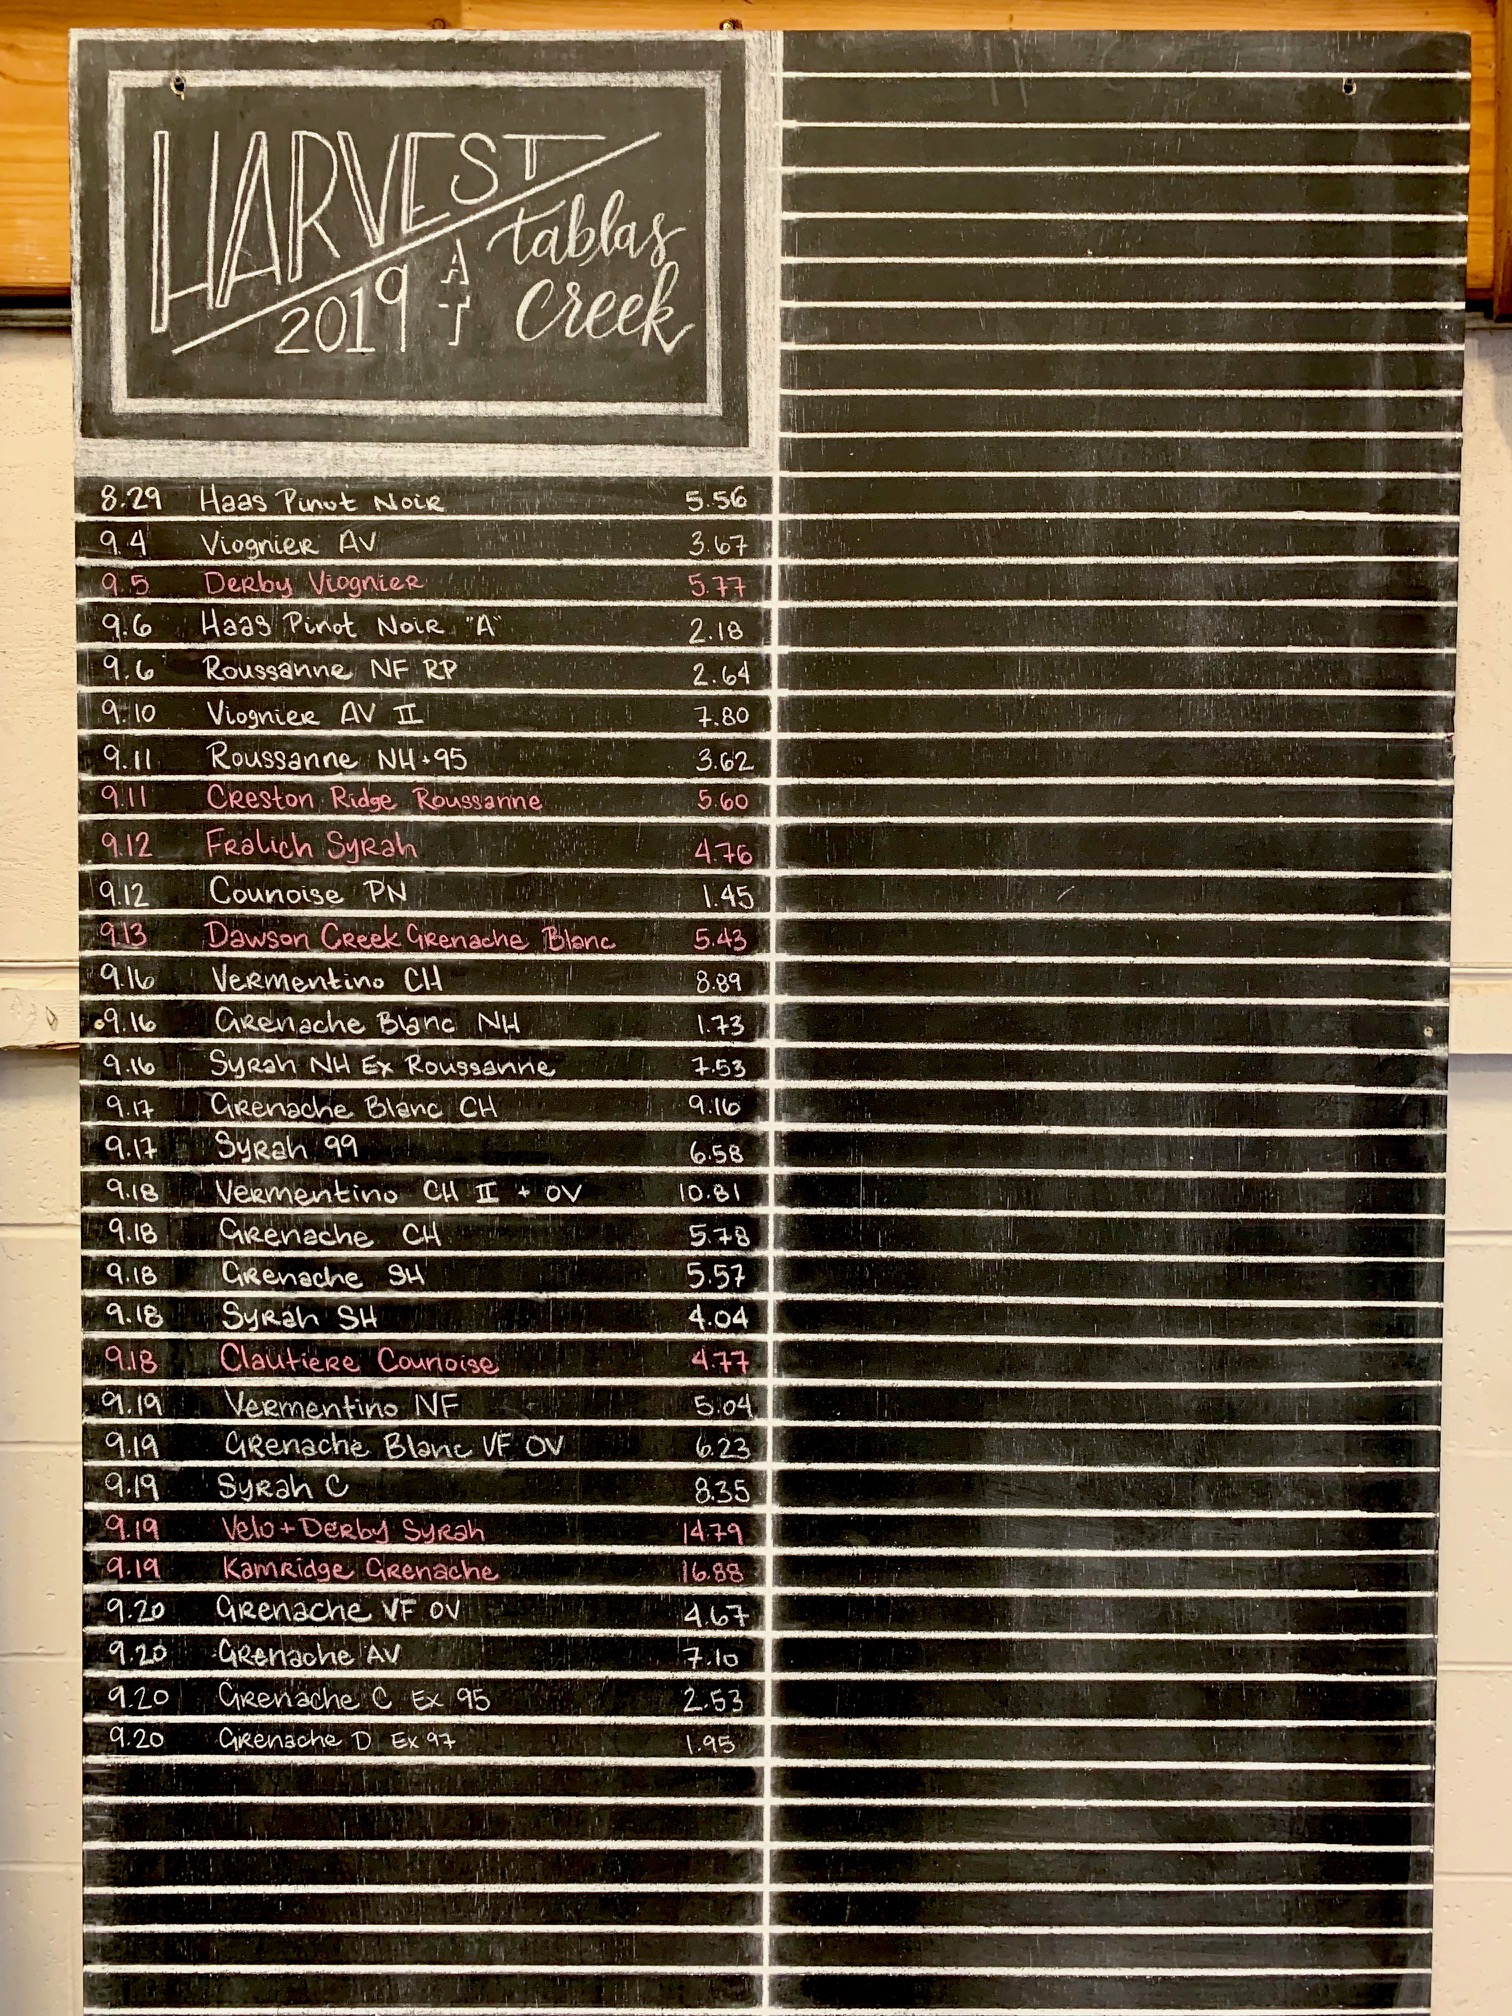 HARVEST
2019 AT tablas creek
8.29 Haas Pinot Noir 5.56
9.4 Viognier AV 3.67
9.5 Derby Viognier 5.77
9.6 Haas Pinot Noir "A" 2.18
9.6 Roussanne NF RP 2.64
9.10 Viognier AV II 7.80
9.11 Roussanne NH+95 3.62
9.11 Creston Ridge Roussanne 5.60
9.12 Fralich Syrah 4.76
9.12 Counoise PN 1.45
9.13 Dawson Creek Grenache Blanc 5.43
9.16 Vermentino CH 8.89
9.16 Grenache Blanc NH 1.73
9.16 Syrah NH Ex Roussanne 7.53
9.17 Grenache Blanc CH 9.16
9.17 Syrah 99 6.58
9.18 Vermentino CH II + OV 10.81
9.18 Grenache CH 5.78
9.18 Grenache SH 5.57
9.18 Syrah SH 4.04
9.18 Clautiere Counoise 4.77
9.19 Vermentino NF 5.04
9.19 Grenache Blanc VF OV 6.23
9.19 Syrah C 8.35
9.19 Velo + Derby Syrah 14.79
9.19 Kamridge Grenache 16.88
9.20 Grenache VF OV 4.67
9.20 Grenache AV 7.10
9.20 Grenache C Ex 95 2.53
9.20 Grenache D Ex 97 1.95